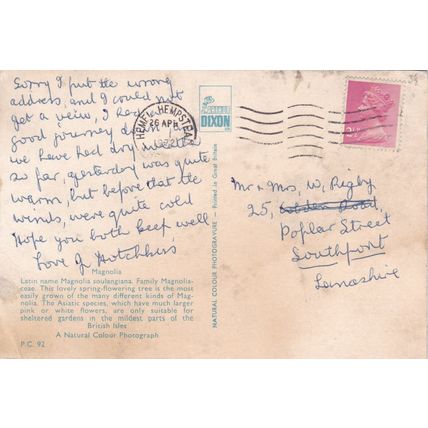 Sorry I put the wrong
address, and I could not
get a view, I had
good journey down
we have had dry weather
so far, yesterday was quite
warm, but before that the
winds, were quite cold
Hope you both keep well
Love
Magnolia
Latin name Magnolia soulangiana. Family Magnolia-
ceae. This lovely spring-flowering tree is the most
easily grown of the many different kinds of Mag-
nolia. The Asiatic species, which have much larger
pink or white flowers, are only suitable for
sheltered gardens in the mildest parts of the
British Isles
A Natural Colour Photograph
P.C. 92
HEMEL HEMPSTEAD
26 APR
DIXON
NATURAL COLOUR PHOTOGRAVURE — Printed in Great Britain
2½
Mr & Mrs, W. Rigby
25,
Poplar Street
Southport
Lancashire